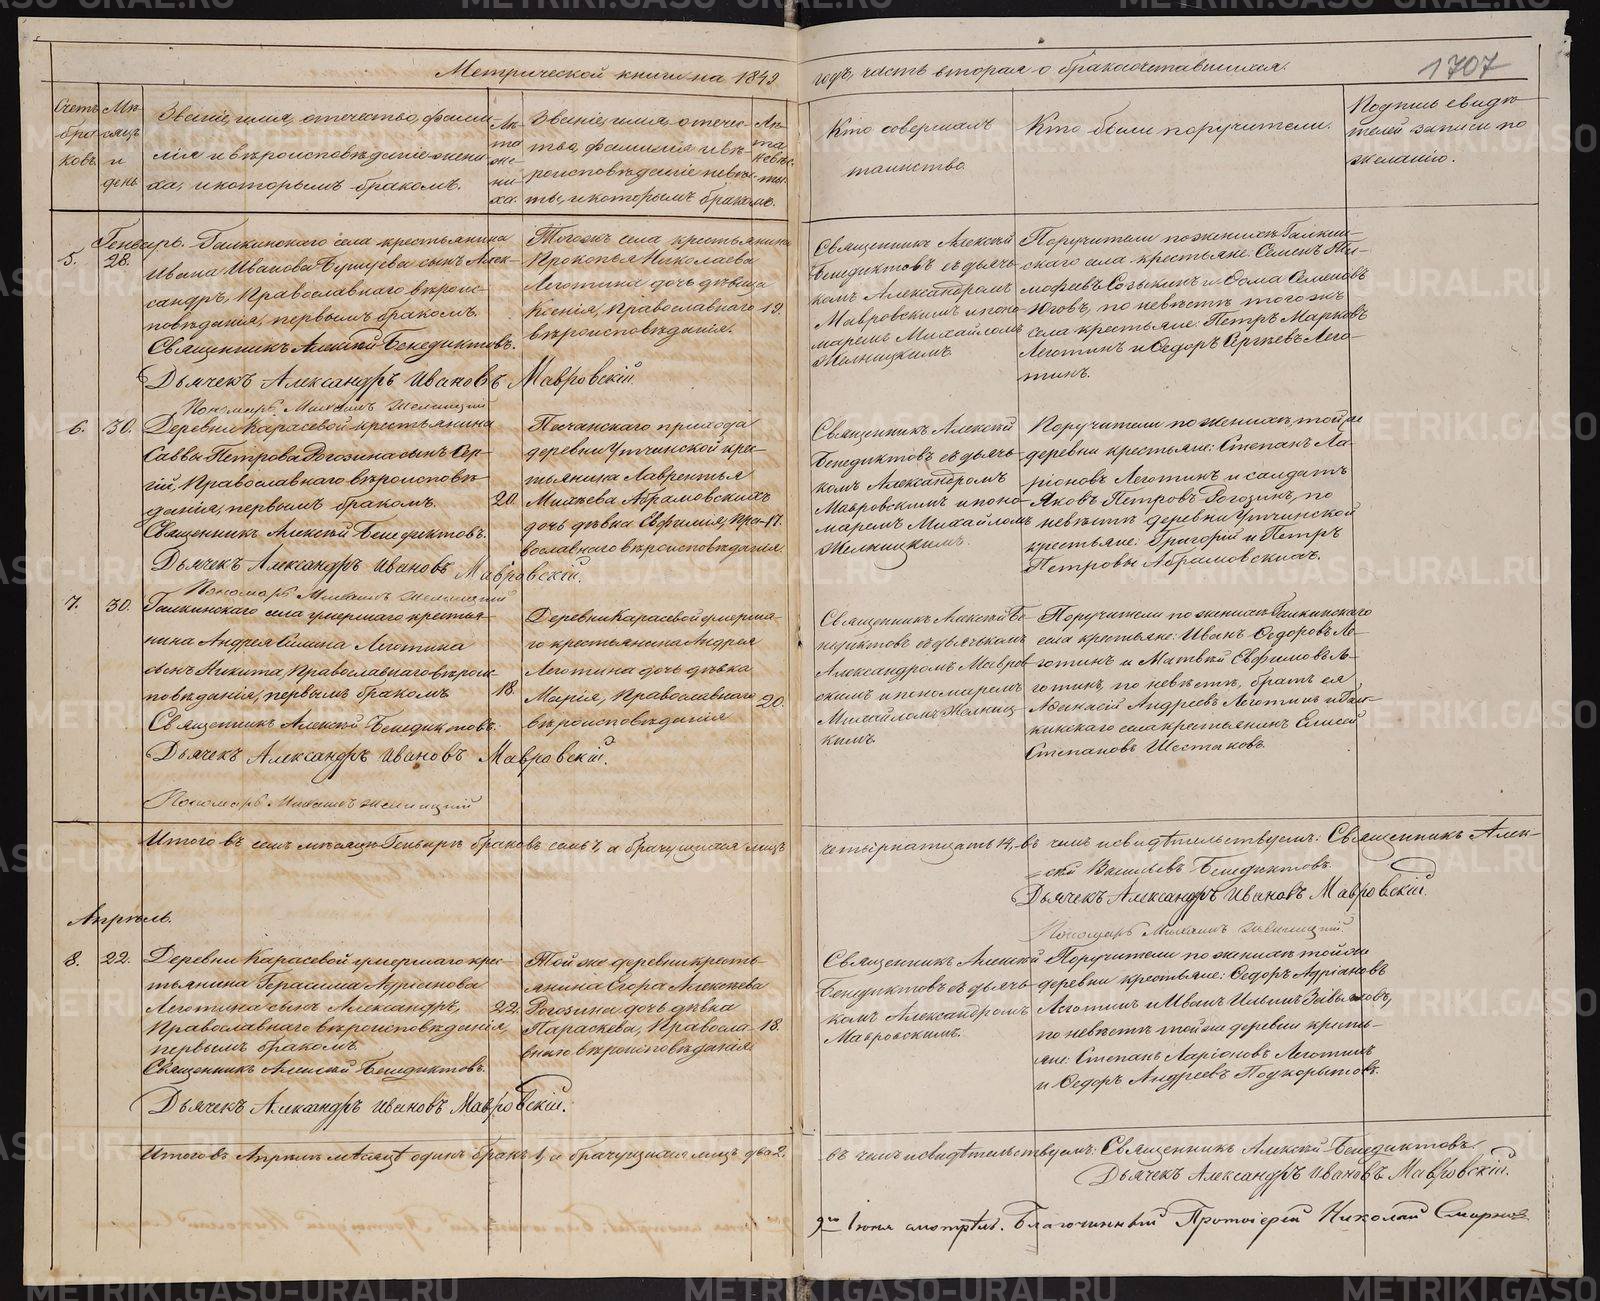 Метрической книги на 1849
годъ, часть вторая о бракосочетавшихся.
1707
Счетъ
бра
ковъ.
Мѣ
сяцъ
и
день
Званіе, имя, отчество, фами-
лія и вѣроисповѣданіе жени
ха, и которымъ бракомъ.
Лѣ
та
же
ни
ха.
Званіе, имя, отчес-
тво, фамилія и вѣ-
роисповѣданіе невѣс-
ты, и которымъ бракомъ.
Лѣ
та
невѣс-
ты.
Кто совершалъ
таинство.
Кто были поручители.
Подпись свидѣ
телей записи по
желанію.
Генварь.
5.
28.
Галкинскаго села крестьянина
Ивана Иванова Бушуева сынъ Алек-
сандръ, Православнаго вѣроис-
повѣданія, первымъ бракомъ.
Священникъ Алексѣй Бенедиктовъ.
Дьячекъ Александръ Ивановъ Мавровскій.
Пономарь Михаилъ Желницкій
Тогожъ села крестьянина
Прокопья Николаева
Леготина дочь дѣвица
Ксенія, Православнаго
вѣроисповѣданія.
19.
Священникъ Алексѣй
Бенедиктовъ съ дьяч-
комъ Александромъ
Мавровскимъ и поно-
маремъ Михайломъ
Желницкимъ.
Поручители по женихѣ Галкин-
скаго села крестьяне: Семенъ Ти-
мофеевъ Созыкинъ и Фома Семеновъ
Юговъ, по невѣстѣ тогожъ
села крестьяне: Петръ Марковъ
Леготинъ и Ѳедоръ Сергѣевъ Лего-
тинъ.
6.
30.
Деревни Карасевой крестьянина
Саввы Петрова Рогозина сынъ Сер-
гій, Православнаго вѣроисповѣ-
данія, первымъ бракомъ.
20.
Священникъ Алексѣй Бенедиктовъ.
Дьячекъ Александръ Ивановъ Мавровскій.
Пономарь Михаилъ Желницкій
Песчанскаго прихода
деревни Утчинской кре-
стьянина Лаврентья
Михѣева Абрамовскихъ
дочь дѣвка Евфимія, Пра-
вославнаго вѣроисповѣданія.
17.
Священникъ Алексѣй
Бенедиктовъ съ дьяч-
комъ Александромъ
Мавровскимъ и поно-
маремъ Михайломъ
Желницкимъ.
Поручители по женихѣ, той же
деревни крестьяне: Степанъ Ла-
ріоновъ Леготинъ и салдатъ
Яковъ Петровъ Рогозинъ, по
невѣстѣ деревни Утчинской
крестьяне: Григорій и Петръ
Петровы Абрамовскихъ.
7.
30.
Галкинскаго села умершаго крестья-
нина Андрея Леготина
сынъ Никита, Православнаго вѣроис-
повѣданія, первымъ бракомъ
18.
Священникъ Алексѣй Бенедиктовъ.
Дьячекъ Александръ Ивановъ Мавровскій.
Пономарь Михаилъ Желницкій
Деревни Карасевой умерша-
го крестьянина Андрея
Леготина дочь дѣвка
Марія, Православнаго
вѣроисповѣданія
20.
Священникъ Алексѣй Бе-
недиктовъ съ дьячькомъ
Александромъ Мавров-
скимъ и пономаремъ
Михайломъ Желниц-
кимъ.
Поручители по женихѣ Галкинскаго
села крестьяне: Иванъ Ѳедоровъ Ле-
готинъ и Матвѣй Евфимовъ Ле-
готинъ, по невѣстѣ, братъ ея
Афанасій Андреевъ Леготинъ и Гал-
кинскаго села крестьянинъ Елисей
Степановъ Шестаковъ.
Итого въ семъ мѣсяцѣ Генварѣ браковъ семь 7, а брачущихся лицъ
четырнатцать 14, въ чемъ и свидѣтельствуемъ: Священникъ Алек-
сѣй Васильевъ Бенедиктовъ.
Дьячекъ Александръ Ивановъ Мавровскій.
Пономарь Михаилъ Желницкій.
Апрѣль.
8.
22.
Деревни Карасевой умершаго крес-
тьянина Герасима Адріанова
Леготина сынъ Александръ,
Православнаго вѣроисповѣданія,
первымъ бракомъ.
22.
Священникъ Алексѣй Бенедиктовъ.
Дьячекъ Александръ Ивановъ Мавровскій.
Той же деревни кресть-
янина Егора Алексѣева
Рогозина дочь дѣвка
Параскева, Правосла-
внаго вѣроисповѣданія.
18.
Священникъ Алексѣй
Бенедиктовъ съ дьяч-
комъ Александромъ
Мавровскимъ.
Поручители по женихѣ той же
деревни крестьяне: Ѳедоръ Адріановъ
Леготинъ и Иванъ Ильинъ Завьяловъ,
по невѣстѣ той же деревни кресть-
яне: Степанъ Ларіоновъ Леготинъ
и Ѳедоръ Андреевъ Подкорытовъ.
Итого въ Апрѣлѣ мѣсяцѣ одинъ бракъ 1, а брачущихся лицъ два 2.
въ чемъ и свидѣтельствуемъ: Священникъ Алексѣй Бенедиктовъ.
Дьячекъ Александръ Ивановъ Мавровскій.
9го Іюня смотрѣлъ. Благочинный Протоіерей Николай Смирновъ